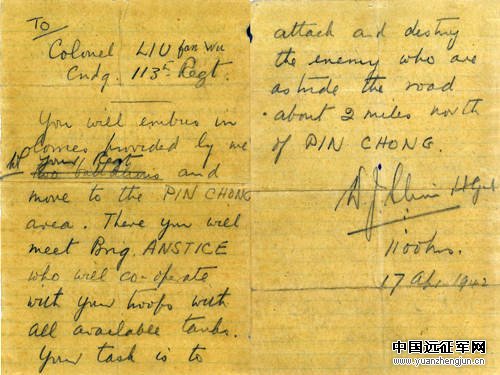 To
Colonel LIU fan Wu
Cmdg. 113th Regt.
You will embus in
lorries provided by me
your Regt
two battalions and
move to the PIN CHONG
area. There you will
meet Brig. ANSTICE
who will co-operate
with your troops with
all available tanks.
Your task is to
attack and destroy
the enemy who are
astride the road
about 2 miles north
of PIN CHONG.
W. J. Slim
1100 hrs.
17 Ap. 1942
中国远征军网
www.yuanzhengjun.cn